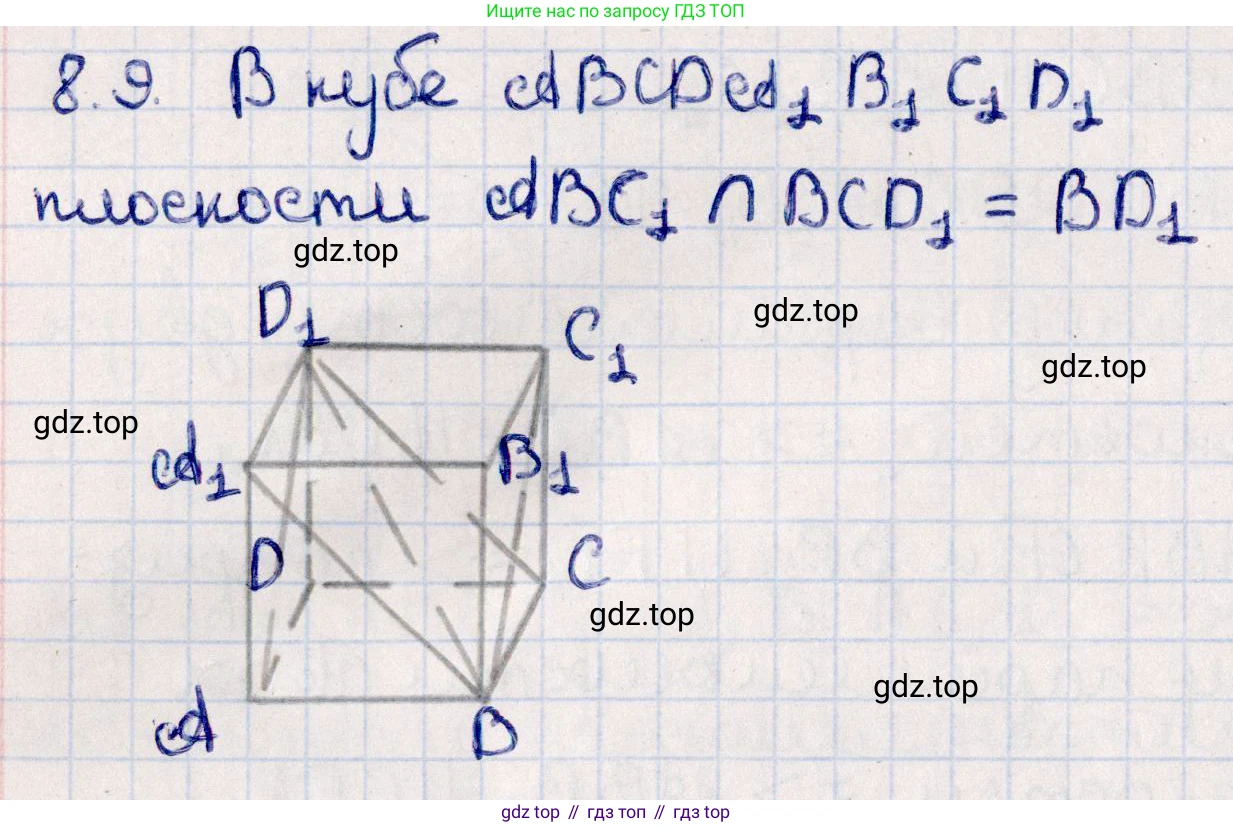 Ищите нас по запросу ГДЗ ТОП
8.9. В кубе ABCDA₁B₁C₁D₁
плоскости ABC₁ ∩ BCD₁ = BD₁
gdz.top
D₁
C₁
gdz.top
gdz.top
gdz.top
A₁
B₁
D
C
gdz.top
gdz.top
A
B
gdz top // гдз топ // gdz top